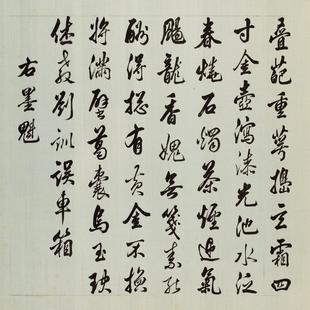 疊葩重萼擣玄霜四
寸金壺瀉漆光池水泛
春燒石濁茶煙過氣
颺龍香媿無箋素能
酬得總有黃金不換
將滿壁葛囊烏玉玦
休教劉訓誤車箱
右墨魁